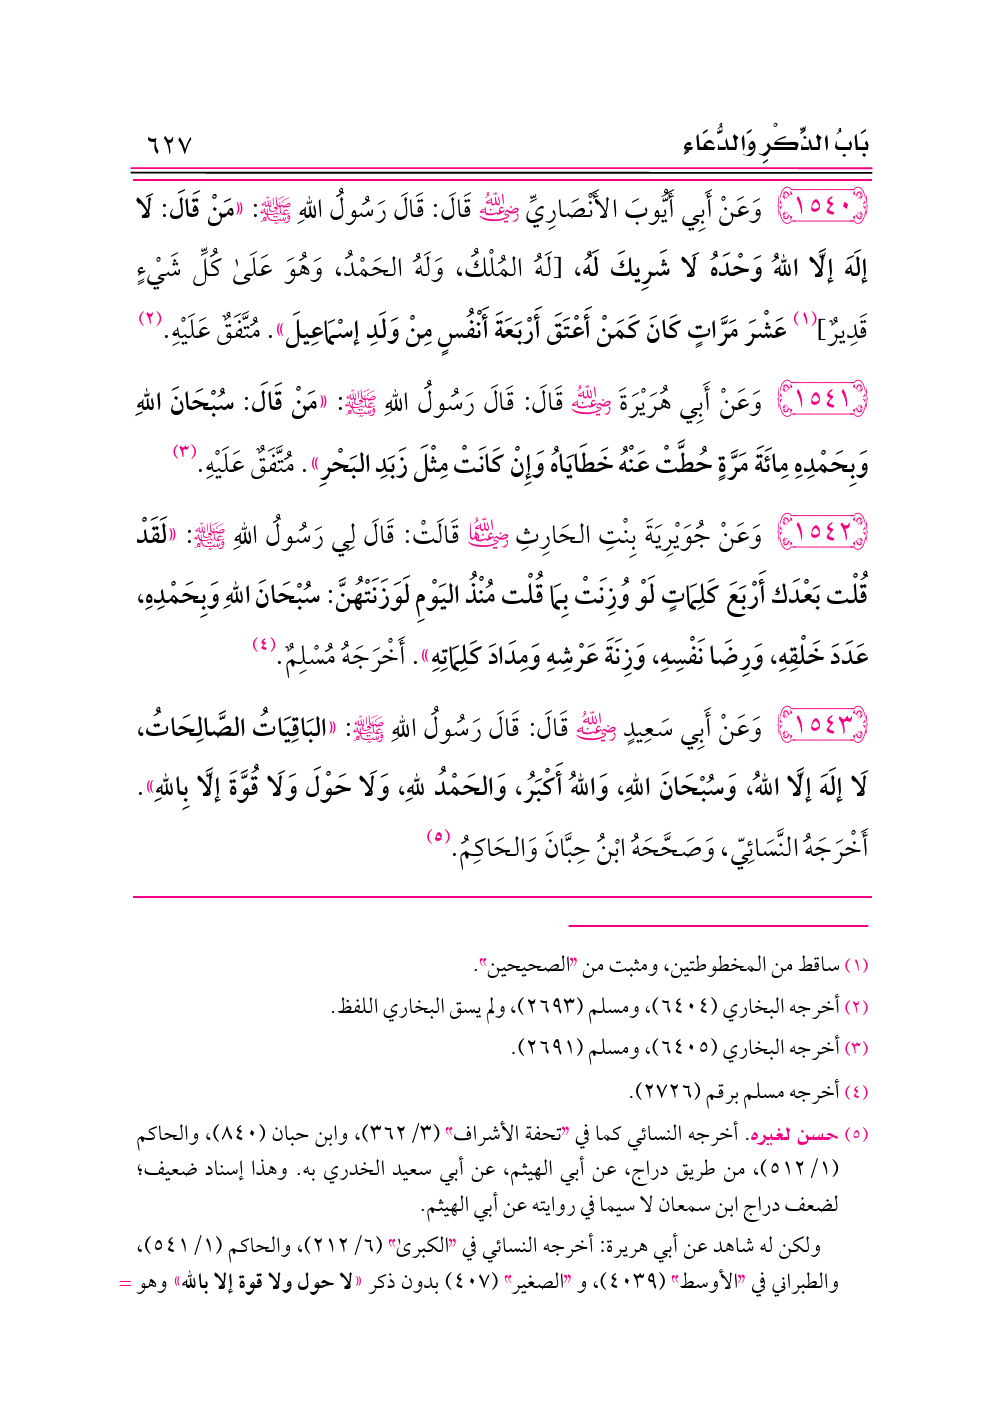 بَابُ الذِّكْرِ وَالدُّعَاء ٦٢٧
١٥٤٠ وَعَنْ أَبِي أَيُّوبَ الأَنْصَارِيِّ ﵁ قَالَ: قَالَ رَسُولُ اللهِ ﷺ: «مَنْ قَالَ: لَا
إِلَهَ إِلَّا اللهُ وَحْدَهُ لَا شَرِيكَ لَهُ، [لَهُ المُلْكُ، وَلَهُ الحَمْدُ، وَهُوَ عَلَىٰ كُلِّ شَيْءٍ
قَدِيرٌ](١) عَشْرَ مَرَّاتٍ كَانَ كَمَنْ أَعْتَقَ أَرْبَعَةَ أَنْفُسٍ مِنْ وَلَدِ إِسْمَاعِيلَ». مُتَّفَقٌ عَلَيْهِ.(٢)
١٥٤١ وَعَنْ أَبِي هُرَيْرَةَ ﵁ قَالَ: قَالَ رَسُولُ اللهِ ﷺ: «مَنْ قَالَ: سُبْحَانَ اللهِ
وَبِحَمْدِهِ مِائَةَ مَرَّةٍ حُطَّتْ عَنْهُ خَطَايَاهُ وَإِنْ كَانَتْ مِثْلَ زَبَدِ البَحْرِ». مُتَّفَقٌ عَلَيْهِ.(٣)
١٥٤٢ وَعَنْ جُوَيْرِيَةَ بِنْتِ الحَارِثِ ﵂ قَالَتْ: قَالَ لِي رَسُولُ اللهِ ﷺ: «لَقَدْ
قُلْت بَعْدَك أَرْبَعَ كَلِمَاتٍ لَوْ وُزِنَتْ بِمَا قُلْت مُنْذُ اليَوْمِ لَوَزَنَتْهُنَّ: سُبْحَانَ اللهِ وَبِحَمْدِهِ،
عَدَدَ خَلْقِهِ، وَرِضَا نَفْسِهِ، وَزِنَةَ عَرْشِهِ وَمِدَادَ كَلِمَاتِهِ». أَخْرَجَهُ مُسْلِمٌ.(٤)
١٥٤٣ وَعَنْ أَبِي سَعِيدٍ ﵁ قَالَ: قَالَ رَسُولُ اللهِ ﷺ: «البَاقِيَاتُ الصَّالِحَاتُ،
لَا إِلَهَ إِلَّا اللهُ، وَسُبْحَانَ اللهِ، وَاللهُ أَكْبَرُ، وَالحَمْدُ للهِ، وَلَا حَوْلَ وَلَا قُوَّةَ إِلَّا بِاللهِ».
أَخْرَجَهُ النَّسَائِيّ، وَصَحَّحَهُ ابْنُ حِبَّانَ وَالحَاكِمُ.(٥)
(١) ساقط من المخطوطتين، ومثبت من "الصحيحين".
(٢) أخرجه البخاري (٦٤٠٤)، ومسلم (٢٦٩٣)، ولم يسق البخاري اللفظ.
(٣) أخرجه البخاري (٦٤٠٥)، ومسلم (٢٦٩١).
(٤) أخرجه مسلم برقم (٢٧٢٦).
(٥) حسن لغيره. أخرجه النسائي كما في "تحفة الأشراف" (٣/ ٣٦٢)، وابن حبان (٨٤٠)، والحاكم
(١/ ٥١٢)، من طريق دراج، عن أبي الهيثم، عن أبي سعيد الخدري به. وهذا إسناد ضعيف؛
لضعف دراج ابن سمعان لا سيما في روايته عن أبي الهيثم.
ولكن له شاهد عن أبي هريرة: أخرجه النسائي في "الكبرىٰ" (٦/ ٢١٢)، والحاكم (١/ ٥٤١)،
والطبراني في "الأوسط" (٤٠٣٩)، و "الصغير" (٤٠٧) بدون ذكر «لا حول ولا قوة إلا بالله» وهو =